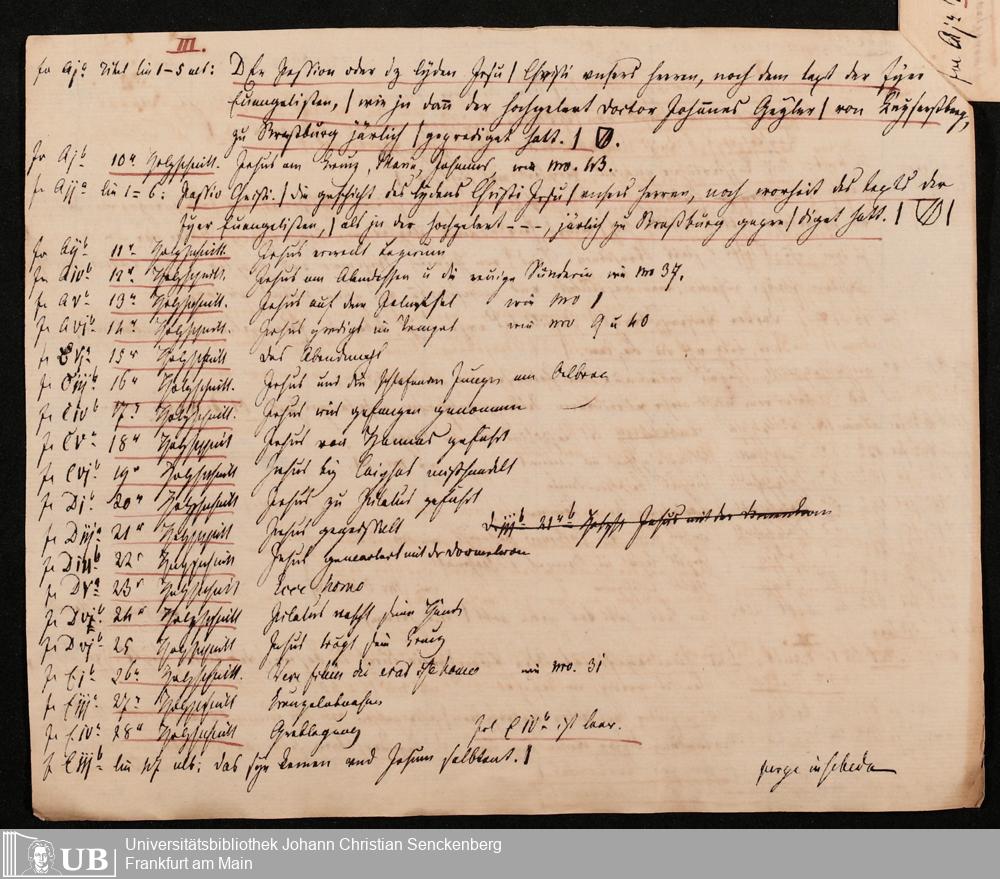 III.
fo Aja Titel lin 1–5 als: DEr Passion oder dz lyden Jesu / Christi unsers herren, noch dem text der fyer
Euangelisten, / wie jn dann der hochgelert doctor Johannes Geyler / von Keysersberg,
zu Straßburg järlich / geprediget hatt. /
fo Ajb 10r Holzschnitt. Jesus am Kreuz, Maria, Johannes wie No. 43.
fo Aija lin 1–6: Passio Christi. / die geschicht des lydens Christi Jesu / unsers herren, noch worheit des texts der
fyer Euangelisten, / als jn der hochgelert - - -, järlich zu Straßburg gepre / diget hatt. /
fo Aijb 11r Holzschnitt. Jesus erweckt Lazarum
fo Aivb 12r Holzschnitt. Jesus am Abendessen u die reuige Sünderin wie No 37.
fo Ava 13r Holzschnitt. Jesus auf dem Palmesel wie No 1
fo Avja 14r Holzschnitt. Jesus predigt im Tempel wie No 9 u 40
15r Holzschnitt Das Abendmahl
fo Ciijb 16r Holzschnitt. Jesus und die schlafenden Jünger am Oelberg
fo Civb 17r Holzschnitt. Jesus wird gefangen genommen
fo Cva 18r Holzschnitt Jesus von Hannas geführt
fo Cvjb 19r Holzschnitt Jesus bey Caiphas mißhandelt
fo Djb 20r Holzschnitt Jesus zu Pilatus geführt
fo Diija 21r Holzschnitt Jesus gegeisselt
fo Diiijb 22r Holzschnitt Jesus gemartert mit der Dornenkron
fo Dva 23r Holzschnitt Ecce homo
fo Dvja 24r Holzschnitt Pilatus wascht seine Hände
fo Dvjb 25 Holzschnitt Jesus trägt sein Kreuz
fo Eja 26r Holzschnitt. Vere filius dei erat iste homo wie No. 31
fo Eiija 27r Holzschnitt Kreuzabnahm
fo Eiva 28r Holzschnitt Grablegung fol E ivb ist leer.
fo Eiijb lin als: das sye kemen und Jesum salbtent. /
perge in scheda
Universitätsbibliothek Johann Christian Senckenberg
UB Frankfurt am Main